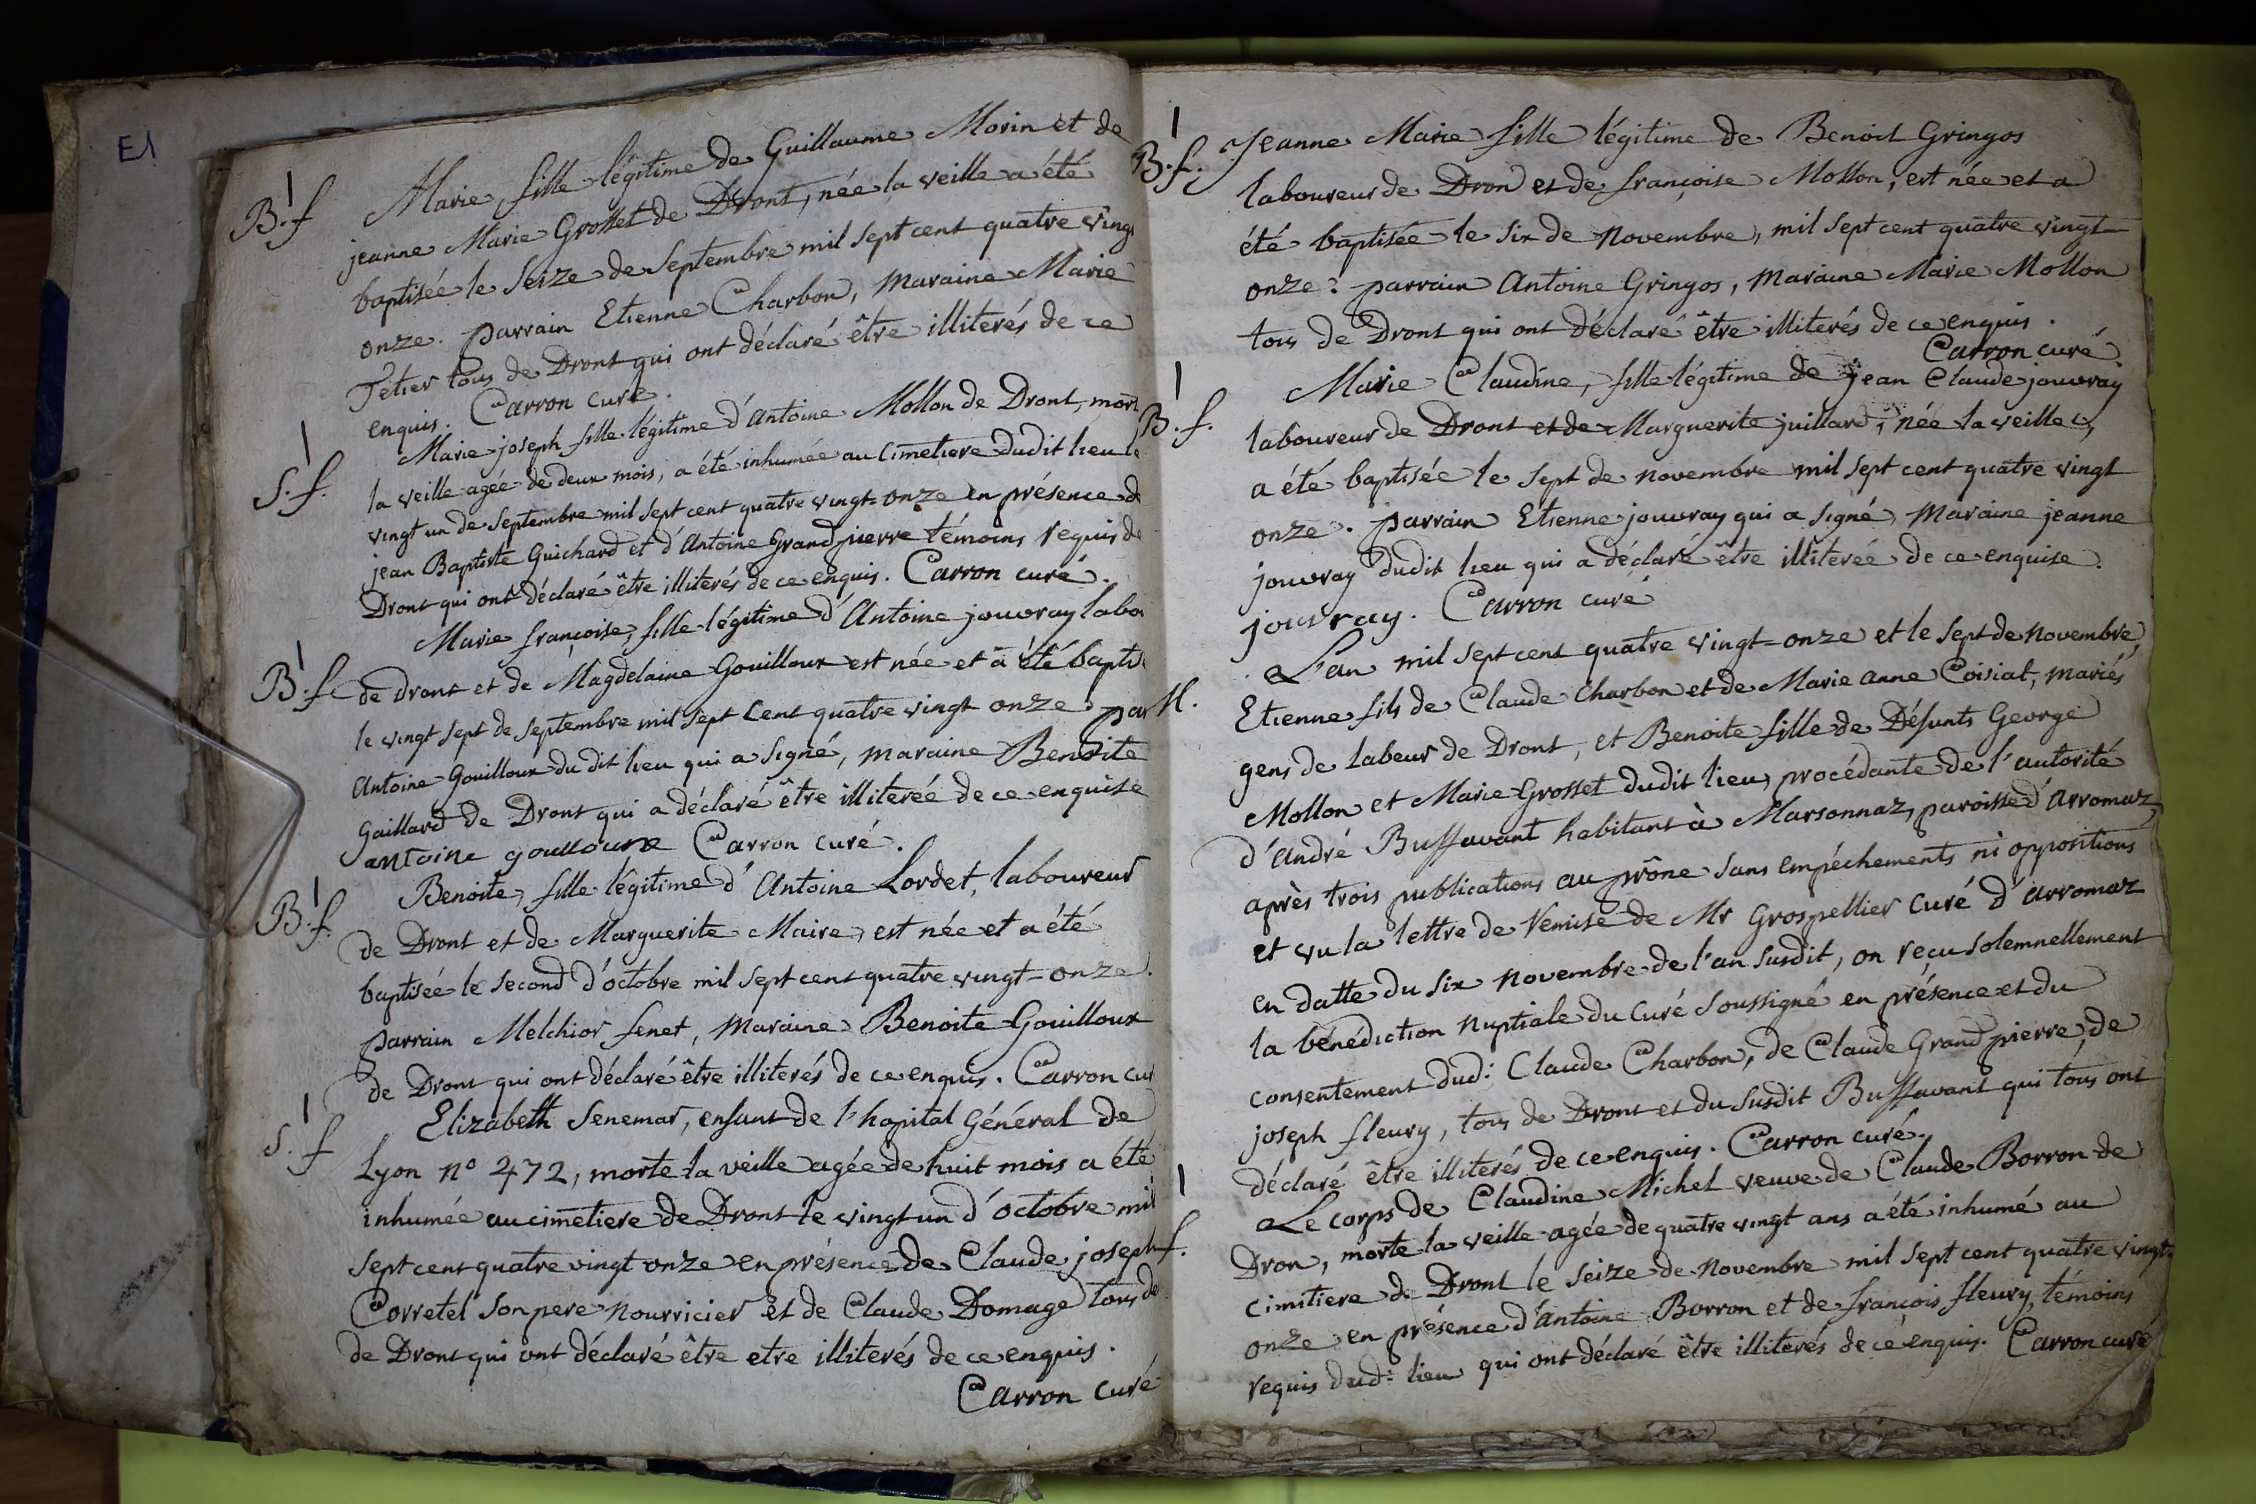 E1
B.f Marie, fille légitime de Guillaume Morin et de
jeanne Marie Grosset de Dront, née la veille a été
baptisée le Seize de Septembre mil sept cent quatre vingt
onze. parrain Etienne Charbon, maraine Marie
Tétier tous de Dront qui ont déclaré être illiterés de ce
enquis. Carron curé.
S.f. Marie joseph fille légitime d'antoine Mollon de Dront, morte
la veille agée de deux mois, a été inhumée au Cimetiere dudit lieu le
vingt un de Septembre mil sept cent quatre vingt-onze en présence de
jean Baptiste Guichard et d'Antoine Grandpierre témoins requis de
Dront qui ont déclaré être illiterés de ce enquis. Carron curé.
Marie françoise, fille légitime d'Antoine jouvray labou
B.f de Dront et de Magdelaine Gouilloux est née et a été bapti
le vingt sept de Septembre mil Sept Cent quatre vingt onze par
Antoine Gouilloux du dit lieu qui a signé, maraine Benoite
Gaillard de Dront qui a déclaré être illiterée de ce enquise
antoine goulloux Carron curé.
B.f. Benoite, fille légitime d'Antoine Lordet, laboureur
de Dront et de Marguerite Maire, est née et a été
baptisée le second d'octobre mil sept cent quatre vingt-onze.
parrain Melchior fenet, Maraine Benoite Gouilloux
de Dront qui ont déclaré être illiterés de ce enquis. Carron cur
S.f Elizabeth Senemar, enfant de l'hopital Général de
Lyon n° 472, morte la veille agée de huit mois a été
inhumée au cimetiere de Dront le vingt un d'octobre mil
Sept cent quatre vingt onze en présence de Claude joseph
Corretel son pere nourricier et de Claude Domage tous de
de Dront qui ont déclaré être etre illiterés de ce enquis.
Carron curé
B.f. Jeanne Marie fille légitime de Benoit Gringos
laboureur de Dron et de françoise Mollon, est née et a
été baptisée le six de Novembre, mil sept cent quatre vingt
onze: parrain Antoine Gringos, maraine Marie Mollon
tous de Dront qui ont déclaré être illiterés de ce enquis.
Carron curé.
B.f. Marie Claudine, fille légitime de jean Claude jouvray
laboureur de Dront et de Marguerite juillard, née la veille
a été baptisée le sept de novembre mil sept cent quatre vingt
onze. parrain Etienne jouvray qui a signé, maraine jeanne
jouvray dudit lieu qui a déclaré être illiterée de ce enquise.
jouvray. Carron curé
L'an mil sept cent quatre vingt-onze et le sept de novembre
M. Etienne fils de Claude Charbon et de Marie anne Coisiat, mariés
gens de labeur de Dront, et Benoite fille de Défunts George
Mollon et Marie Grosset dudit lieu, procédante de l'autorité
d'andré Buffavant habitant à Marsonnaz, paroisse d'arromaz,
après trois publications au prône sans empéchements ni oppositions
et vu la lettre de remise de Mr Grospellier curé d'arromaz
en datte du six novembre de l'an susdit, on reçu solemnellement
la bénédiction nuptiale du curé soussigné en présence et du
consentement dud: Claude Charbon, de Claude Grandpierre, de
joseph fleury, tous de Dront et du susdit Buffavant qui tous ont
déclaré être illiterés de ce enquis. Carron curé.
Le corps de Claudine Michel veuve de Claude Borron de
f. Dron, morte la veille agée de quatre vingt ans a été inhumé au
cimitiere de Dront le seize de novembre mil sept cent quatre vingt
onze en présence d'antoine Borron et de françois fleury, témoins
requis dud: lieu qui ont déclaré être illiterés de ce enquis. Carron curé